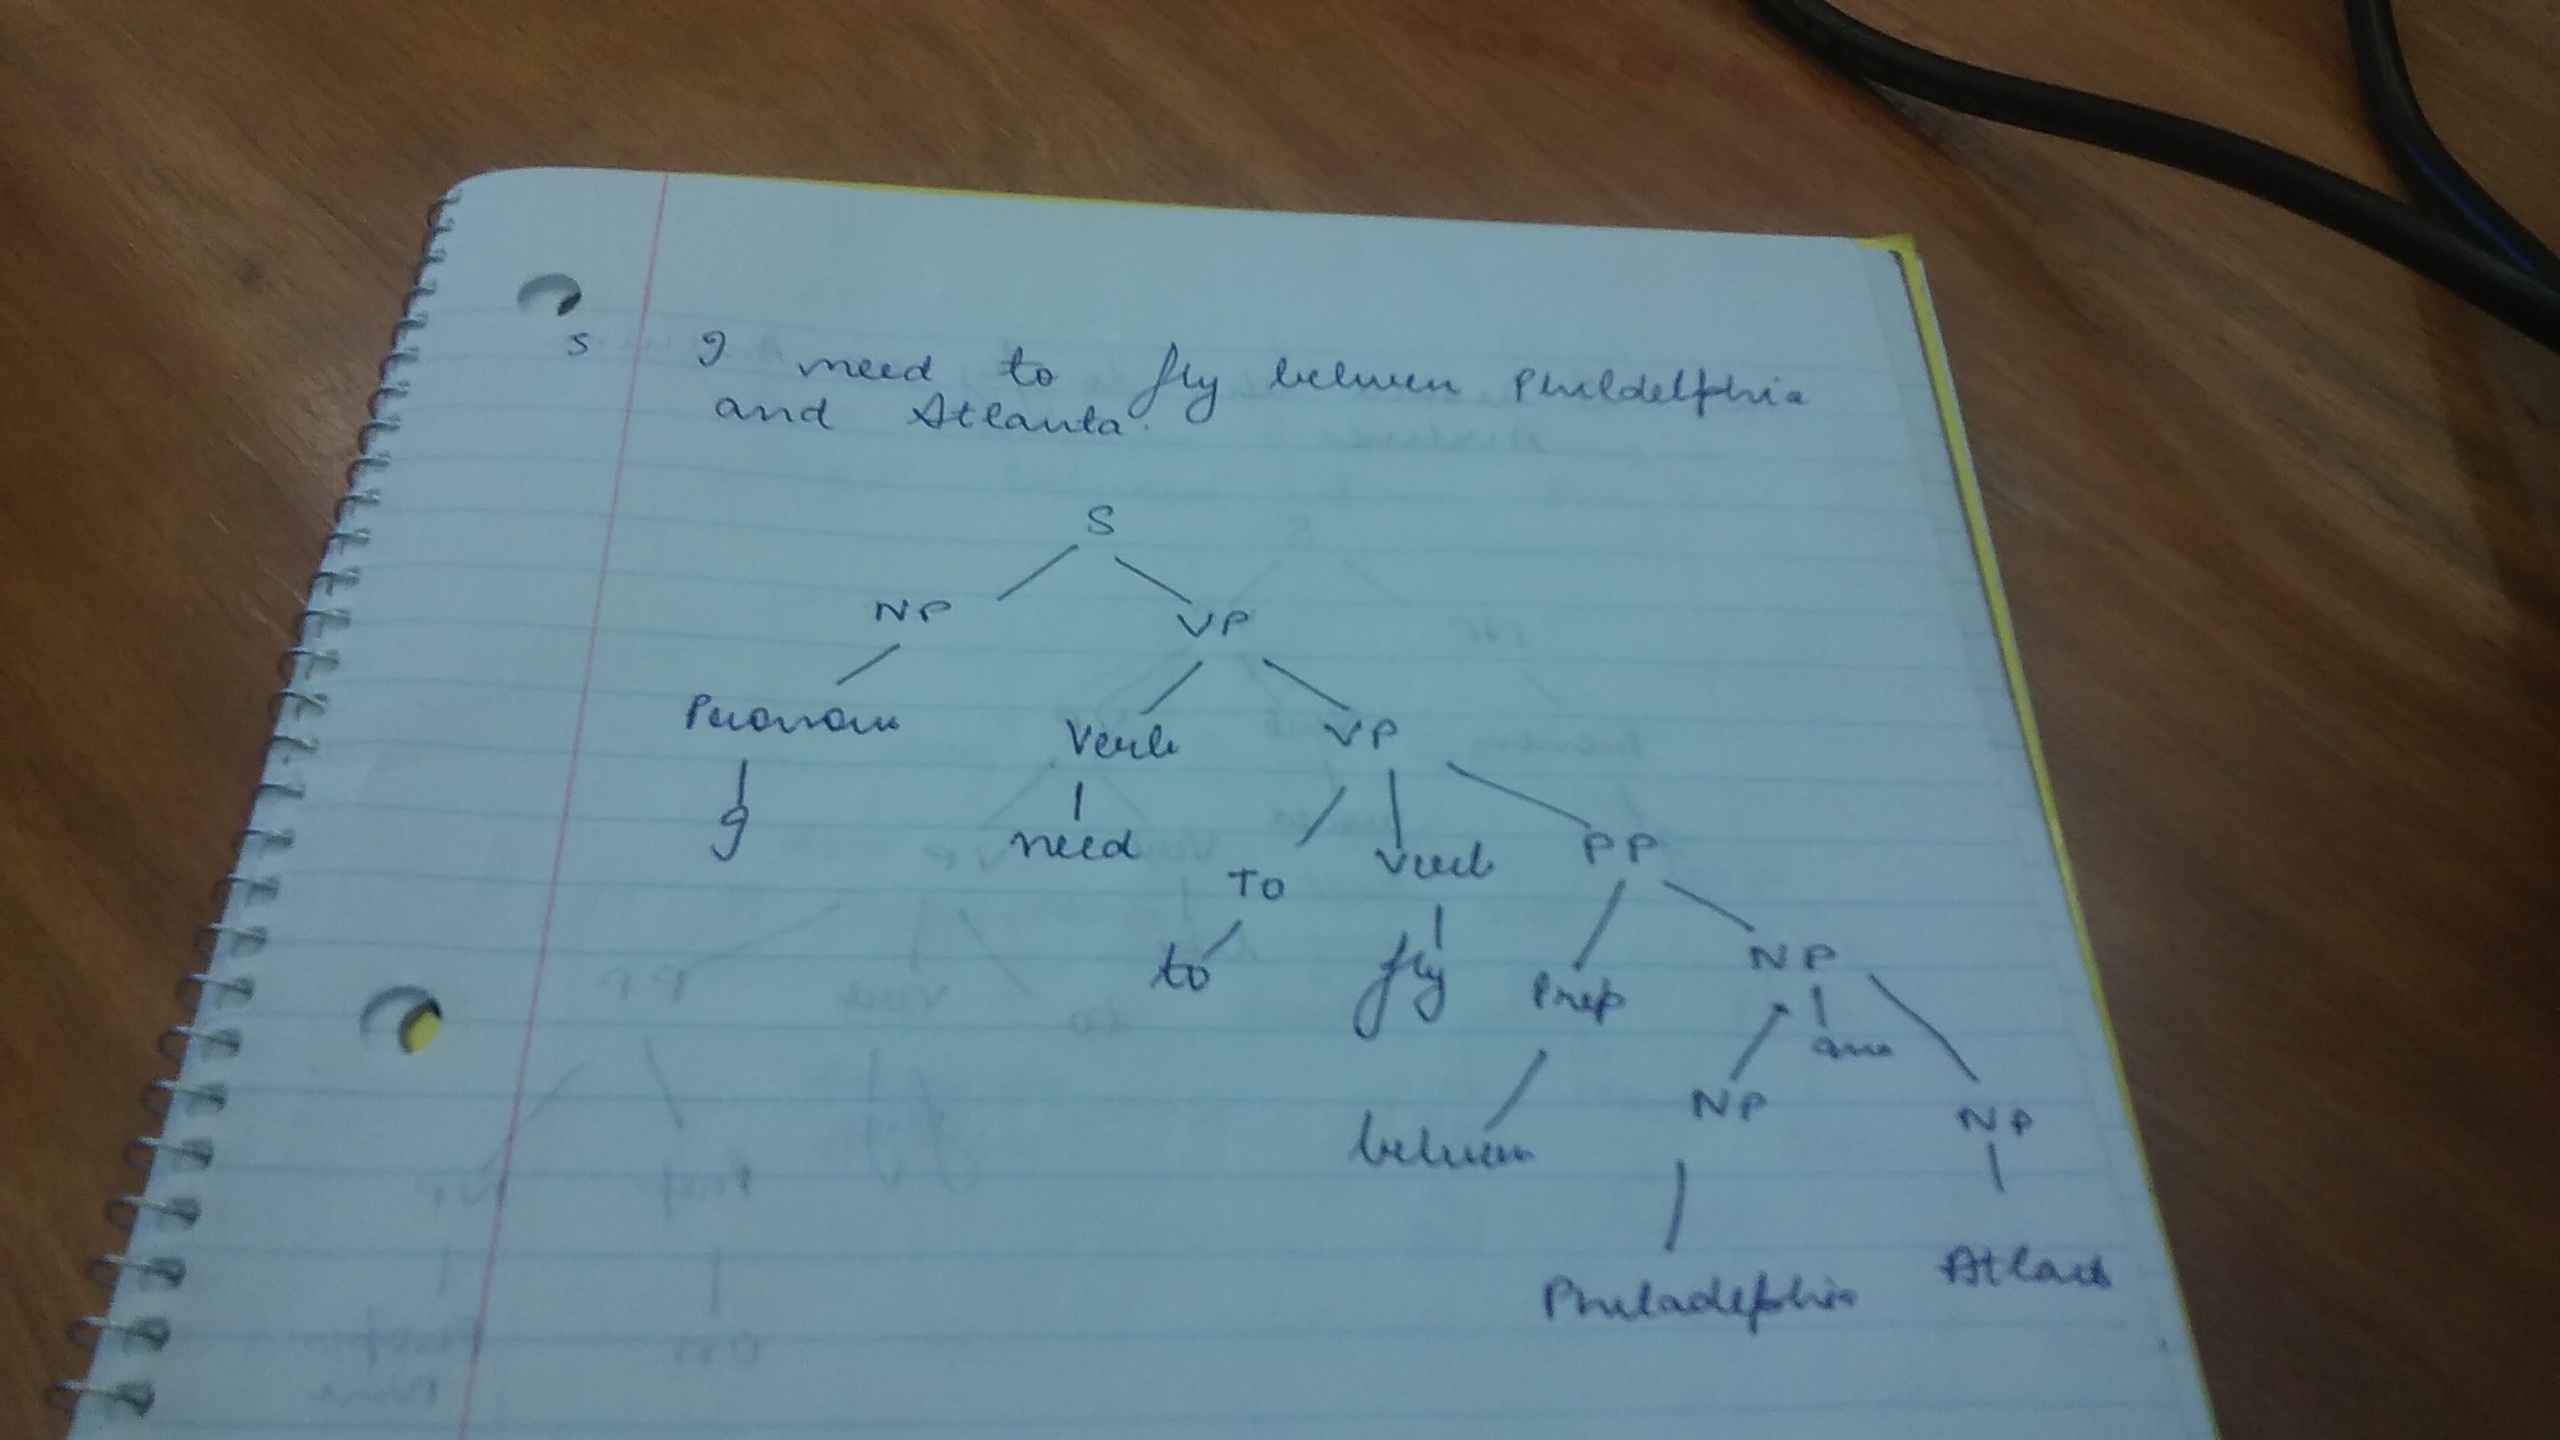 5 I need to fly between Phildelphia
and Atlanta.
S
NP VP
Pronoun Verb VP
I need To Verb PP
to fly Prep NP
between NP and NP
Philadelphia